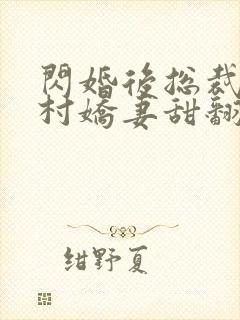 閃婚後總裁
村嬌妻甜翻
紺野夏